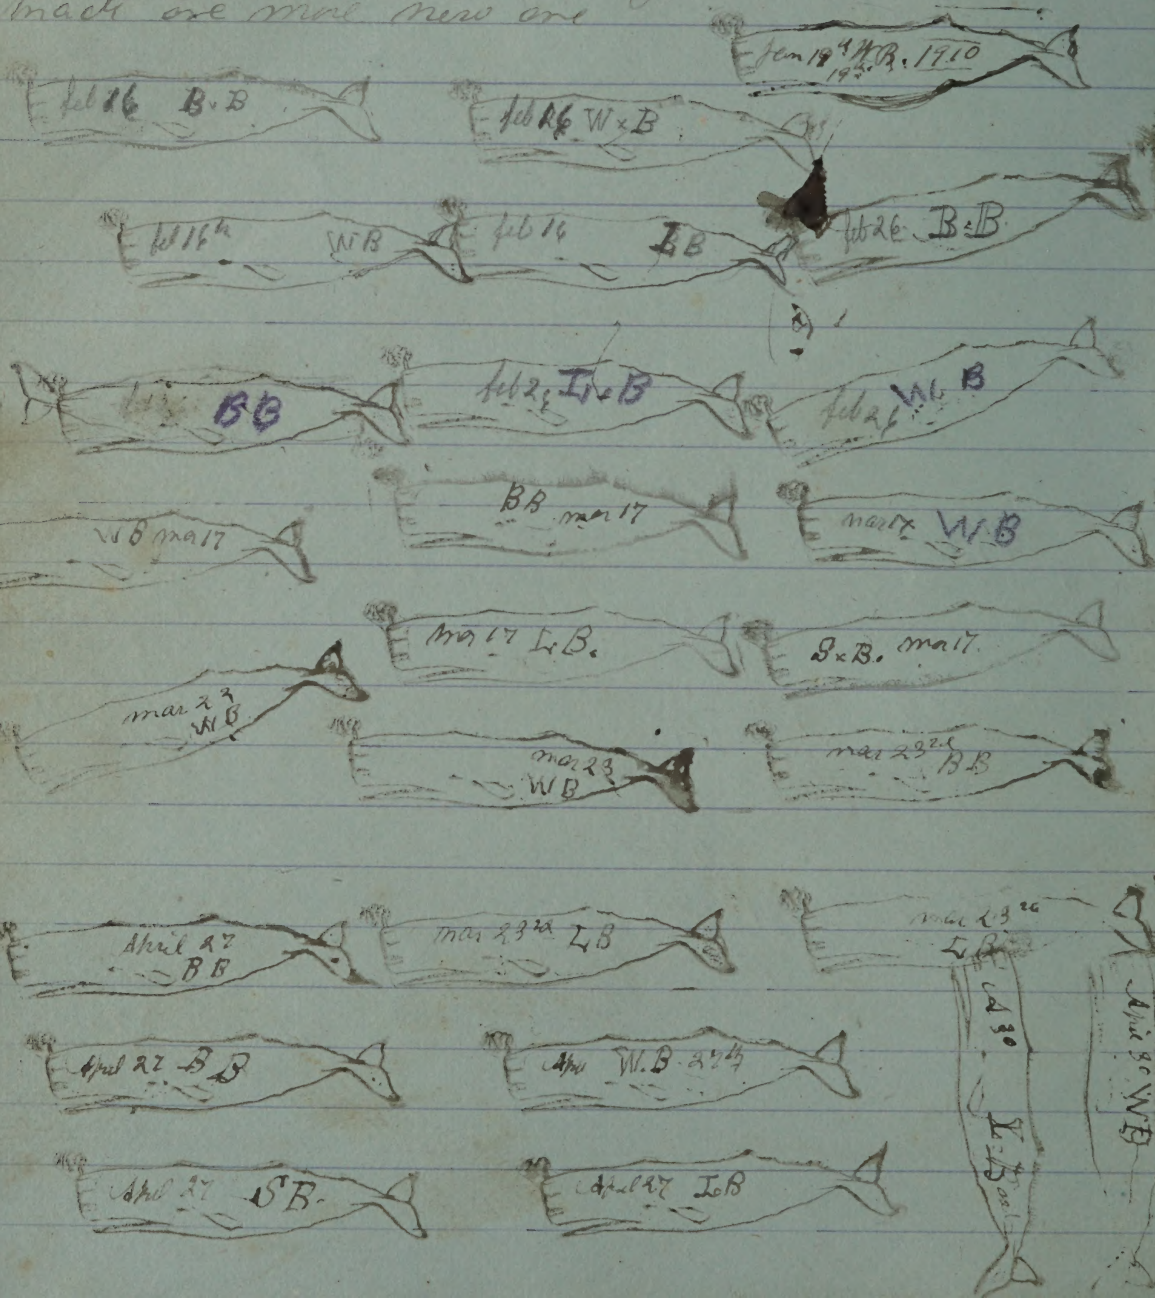 made one more new one
Jan 19th W.B. 1910
19th
feb 16 B.B
feb 26 W x B
feb 16th WB
feb 16 LB
feb 26 B=B.
BB
feb 26 L x B
feb 26 W. B
WB mar 17
BB mar 17
mar 17 W.B
mar 17 L.B.
S x B. mar 17.
mar 23
WB
mar 23
WB
mar 23rd
BB
April 27
BB
mar 23rd LB
mar 23rd
LB
April 27 BB
April W.B. 27th
A 30
L=B
April 30 WB
April 27 SB.
April 27 L.B